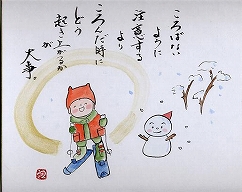 ころばない
ように
注意する
より
ころんだ時に
どう
起き上がるか
が
大事。